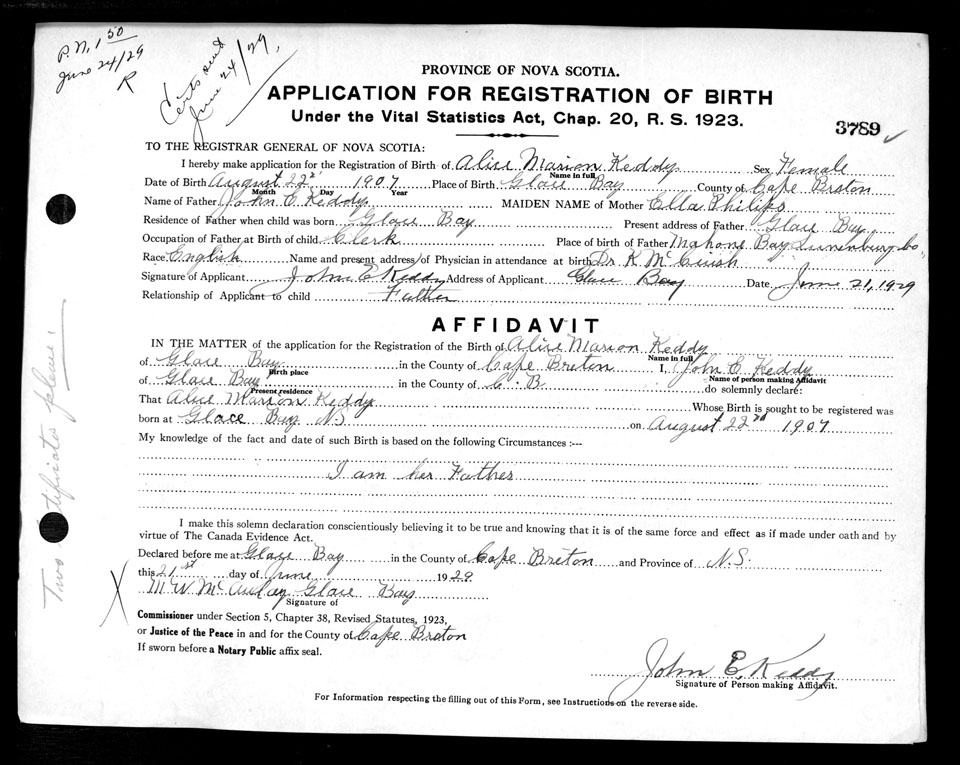 P.N. 1 50
June 24/29
R
Certs sent
June 24/29,
PROVINCE OF NOVA SCOTIA.
APPLICATION FOR REGISTRATION OF BIRTH
Under the Vital Statistics Act, Chap. 20, R. S. 1923.
3789
TO THE REGISTRAR GENERAL OF NOVA SCOTIA:
I hereby make application for the Registration of Birth of Alice Marion Keddy Sex Female
Name in full
Date of Birth August 22 1907 Place of Birth Glace Bay County of Cape Breton
Month Day Year
Name of Father John E Keddy MAIDEN NAME of Mother Ella Philips
Residence of Father when child was born Glace Bay Present address of Father Glace Bay
Occupation of Father at Birth of child Clerk Place of birth of Father Mahone Bay Lunenburg Co
Race English Name and present address of Physician in attendance at birth Dr K Mc
Signature of Applicant John E Keddy Address of Applicant Glace Bay Date June 21, 1929
Relationship of Applicant to child Father
AFFIDAVIT
IN THE MATTER of the application for the Registration of the Birth of Alice Marion Keddy
Name in full
of Glace Bay in the County of Cape Breton I, John E Keddy
Birth place Name of person making Affidavit
of Glace Bay in the County of C. B. do solemnly declare:
Present residence
That Alice Marion Keddy Whose Birth is sought to be registered was
born at Glace Bay NS on August 22nd 1907
My knowledge of the fact and date of such Birth is based on the following Circumstances :—
I am her Father
I make this solemn declaration conscientiously believing it to be true and knowing that it is of the same force and effect as if made under oath and by
virtue of The Canada Evidence Act.
Declared before me at Glace Bay in the County of Cape Breton and Province of N.S.
this 21st day of June 1929
M W McAulay Glace Bay
Signature of
Commissioner under Section 5, Chapter 38, Revised Statutes, 1923,
or Justice of the Peace in and for the County of Cape Breton
If sworn before a Notary Public affix seal.
John E. Keddy
Signature of Person making Affidavit.
For Information respecting the filling out of this Form, see Instructions on the reverse side.
Two certificates please!
X